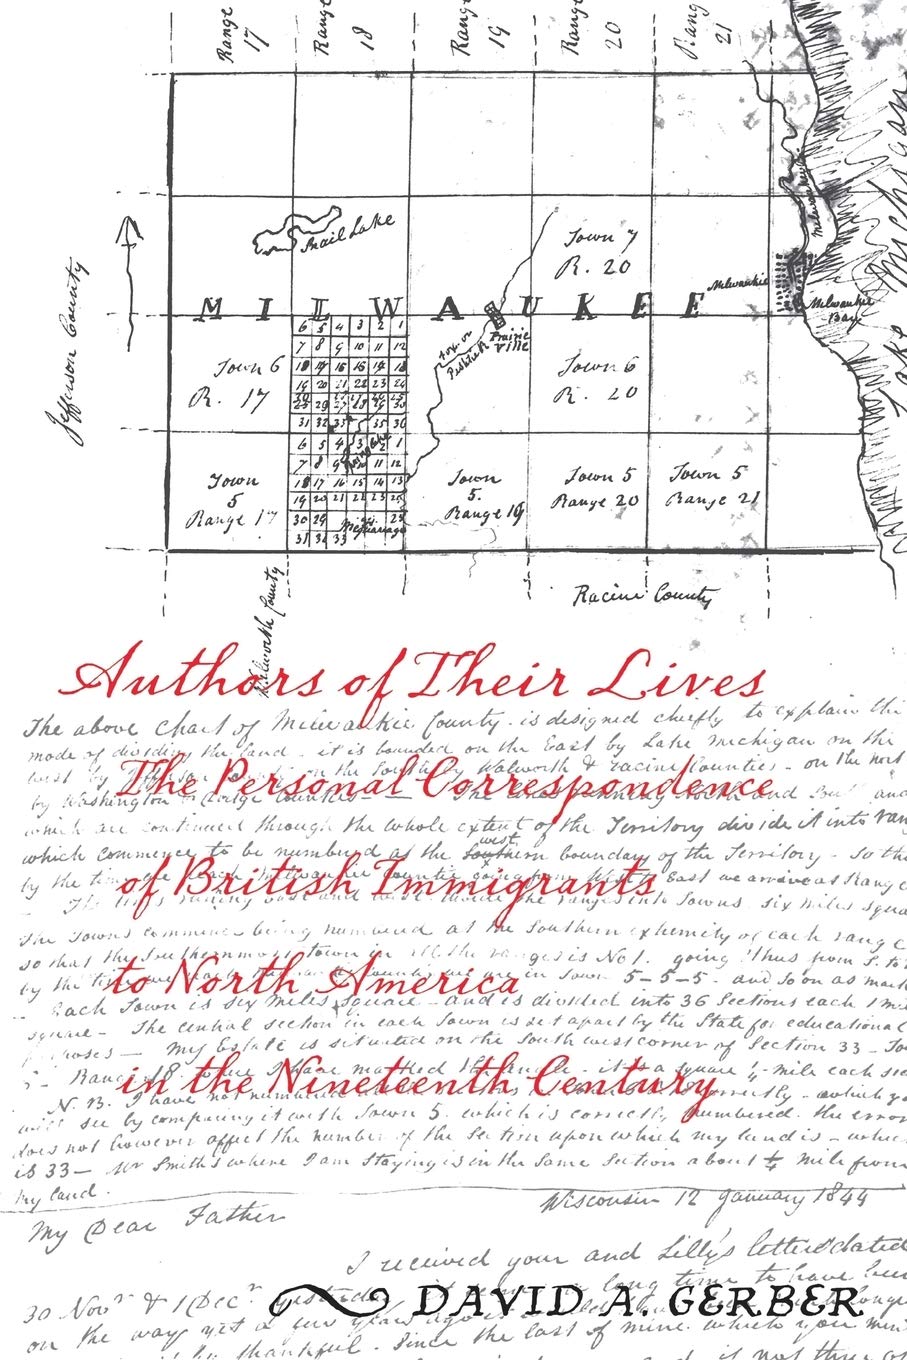 Range 17
Range 18
Range 19
Range 20
Rang 21
Lake Michigan
Milwaukie
Snail Lake
Town 7
R. 20
Milwaukie
Milwaukie
Bay
MILWAUKEE
Jefferson County
6 5 4 3 2 1
7 8 9 10 11 12
Prairie
ville
Fox or
Pishtuck
Town 6
R. 17
Town 6
R. 20
31 32 33 35 36
6 5 4 3 2 1
7 8 9 11 12
18 17 16 15 14 13
19 20 21 22 23
30 29
31 33
Town
5
Range 17
Town
5.
Range 19
Town 5
Range 20
Town 5
Range 21
Walworth County
Racine County
Authors of Their Lives
The above Chart of Milwaukie County is designed chiefly to explain the
mode of dividing the land - it is bounded on the East by Lake Michigan on the
west by Jefferson on the South by Walworth & Racine Counties - on the nort
The Personal Correspondence
by Washington & Dodge Counties - The and
which are continued through the whole extent of the Territory divide it into ran
which commence to be numbered at the Southern west boundary of the Territory - So tha
of British Immigrants
by the time East we arrive at Rang
The lines runing East and West divide the ranges into Towns six miles squa
The Towns commence being numbered at the Southern extremity of each range
so that the Southernmost town in all the ranges is No 1. going thus from S. to
by the time we in Town 5-5-5. and so on as mark
to North America
Each Town is six miles square - and is divided into 36 Sections each 1 mi
square - The central section in each Town is set apart by the State for educational
purposes - My Estate is situated on the South west corner of Section 33 - To
5 - Range 18 where I have marked it a square ¼ mile each si
in the Nineteenth Century
N.B. I have not numbered correctly - which yo
will see by comparing it with Town 5. which is correctly numbered. the error
does not however affect the number of the Section upon which my land is - which
is 33 - Mr Smith's where I am staying is in the same Section about ¼ mile from
my land.
Wisconsin 12 January 1844
My Dear Father
I received your and Lilly's letter dated
30 Novr & 1 Decr long time to have been
DAVID A. GERBER
on the way yet a few years ago
thankful. Since the last of mine which you
it is not three